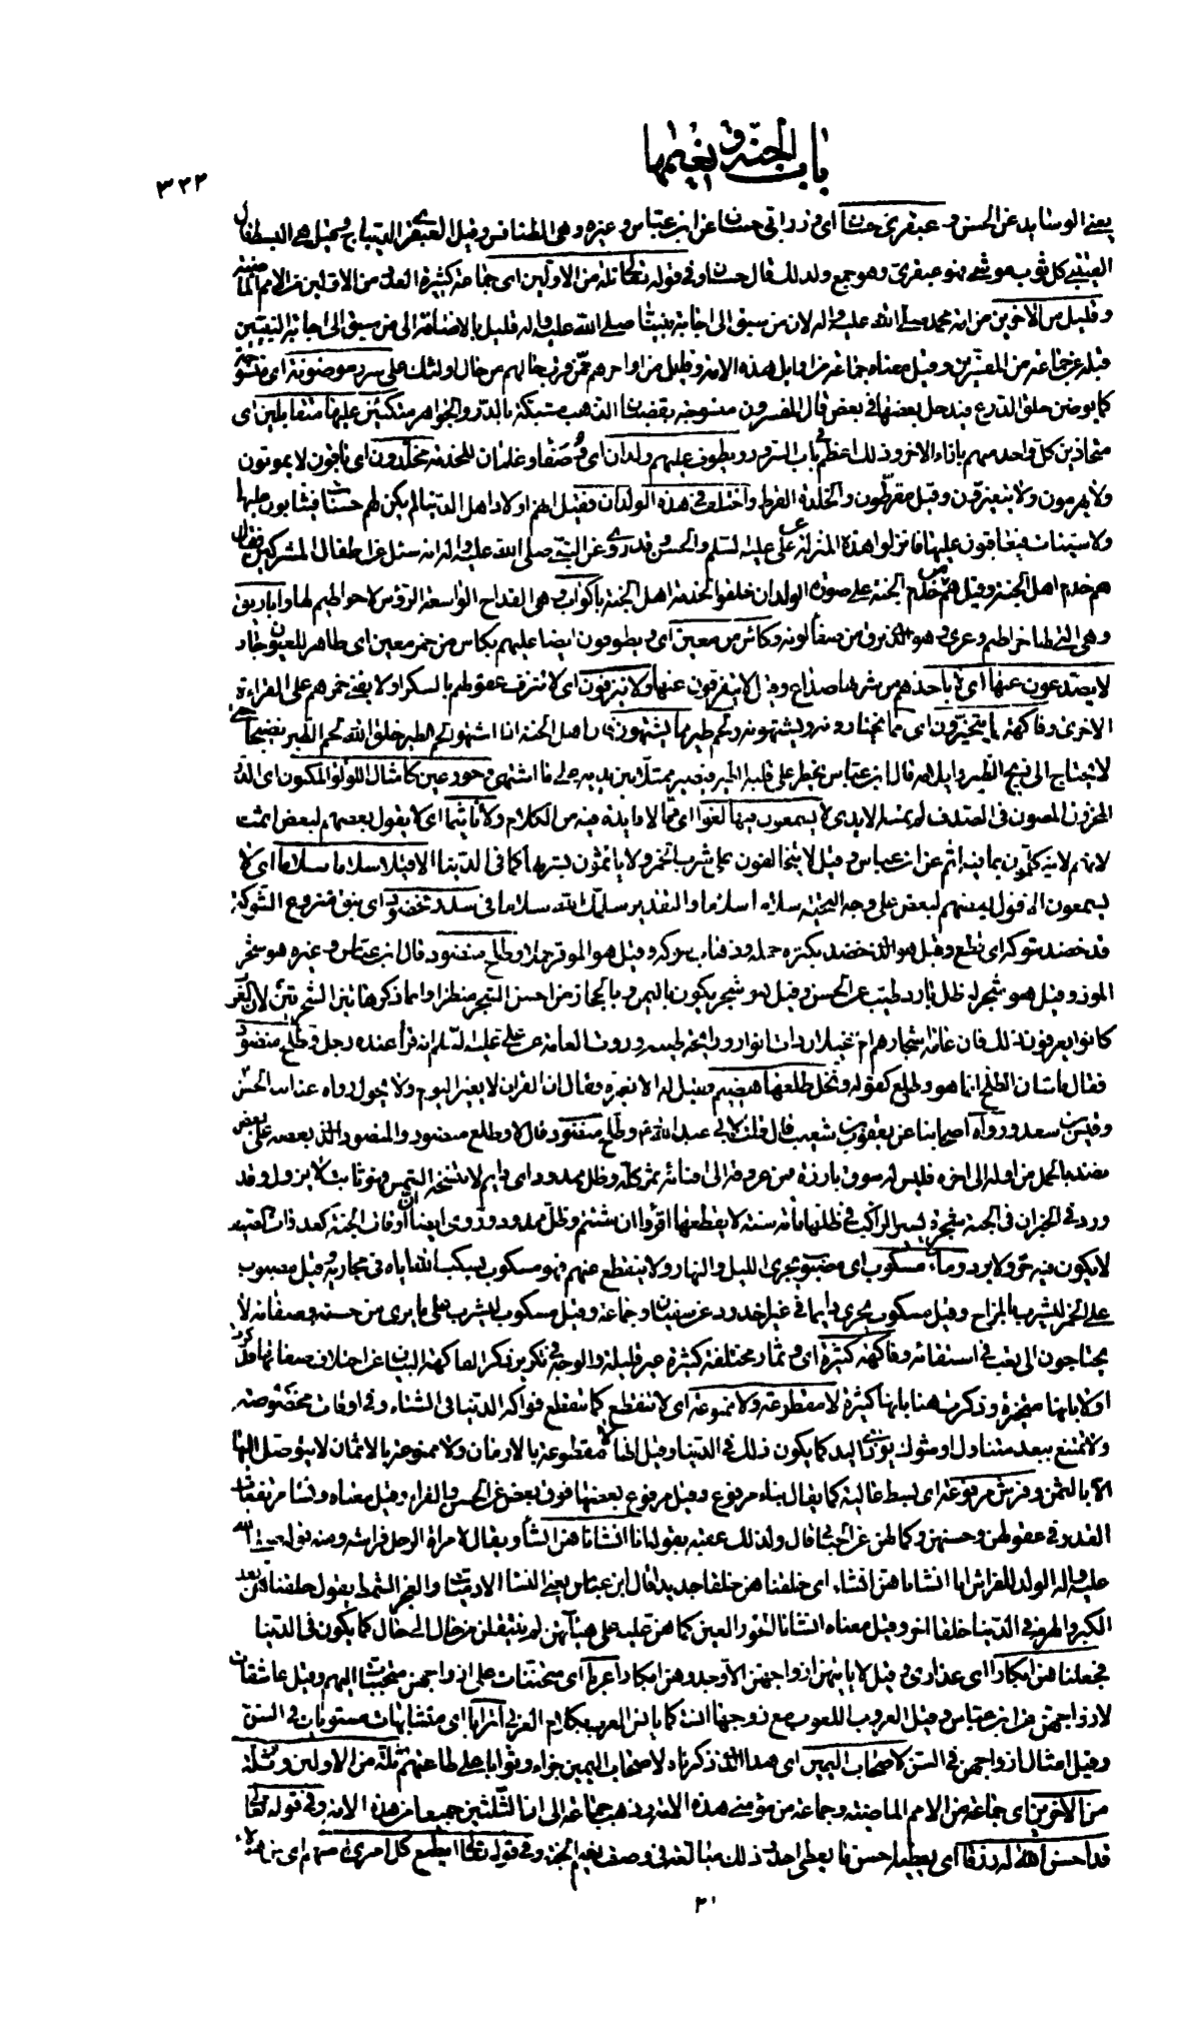 باب الجنة و نعيمها
٣٣٣
يعني الوسايد عن الحسن و عبقري حسان اي و زرابي حسان عن ابن عباس و غيره و هي الطنافس و قيل العبقري الديباج و قيل هي البسط قال
القتيبي كل ثوب موشي فهو عبقري و هو جمع و لذلك قال حسان و في قوله تعالى ثلة من الاولين اي جماعة كثيرة العدد من الاولين من الامم الماضية
و قليل من الآخرين من امة محمد صلى الله عليه و اله لان من سبق الى اجابة نبينا صلى الله عليه و اله قليل بالاضافة الى من سبق الى اجابة النبيين
قبله عن جماعة من المفسرين و قيل معناه جماعة من اوايل هذه الامة و قليل من اواخرهم ممن قرب حالهم من حال اولئك على سرر موضونة اي منسوجة
كما يوضن حلق الدرع فيدخل بعضها في بعض قال المفسرون منسوجة بقضبان الذهب مشبكة بالدر و الجواهر متكئين عليها متقابلين اي
متحاذين كل واحد منهم بازاء الاخر و ذلك اعظم في باب السرور و يطوف عليهم ولدان اي وصفاء و غلمان للخدمة مخلدون اي باقون لا يموتون
و لا يهرمون و لا يتغيرون و قيل مقرطون و الخلدة القرط و اختلف في هذه الولدان فقيل انهم اولاد اهل الدنيا لم يكن لهم حسنات فيثابون عليها
و لا سيئات فيعاقبون عليها فانزلوا هذه المنزلة عن علي عليه السلم و الحسن و قد روي عن النبي صلى الله عليه و اله انه سئل عن اطفال المشركين فقال
هم خدم اهل الجنة و قيل هم من خدم الجنة على صورة الولدان خلقوا لخدمة اهل الجنة باكواب و هي القداح الواسعة الرؤس لا خراطيم لها و اباريق
و هي التي لها خراطيم و عرى و هو الذي برق من صفاء لونه و كاس من معين اي و يطوفون ايضا عليهم بكاس من خمر معين اي ظاهر للعيون جار
لا يصدعون عنها اي لا ياخذهم من شربها صداع و قيل لا يتفرقون عنها و لا ينزفون اي لا تنزف عقولهم بالسكر او لا يفنى خمرهم على القراءة
الاخرى و فاكهة مما يتخيرون اي مما يختارونه و يشتهونه و لحم طير مما يشتهون فان اهل الجنة اذا اشتهوا لحم الطير خلق الله لحم الطير نضيجا حتى
لا يحتاج الى ذبح الطير و ايلامه قال ابن عباس يخطر على قلبه الطير فيصير ممتثلا بين يديه على ما اشتهى و حور عين كامثال اللؤلؤ المكنون اي الدر
المخزون المصون في الصدف لم تمسه الايدي لا يسمعون فيها لغوا اي ما لا فايدة فيه من الكلام و لا تاثيما اي لا يقول بعضهم لبعض اثمت
لانهم لا يتكلمون بما فيه اثم عن ابن عباس و قيل لا يتخالفون على شرب الخمر و لا ياثمون بشربها كما في الدنيا الا قيلا سلاما سلاما اي لا
يسمعون الا قول بعضهم لبعض على وجه التحية سلاما سلاما و التقدير سلمك الله سلاما في سدر مخضود اي نبق منزوع الشوكة
قد خضد شوكه اي قطع و قيل هو الذي خضد بكثرة حمله و ذهاب شوكه و قيل هو الموقر حملا و طلح منضود قال ابن عباس و غيره هو شجر
الموز و قيل هو شجر له ظل بارد طيب عن الحسن و قيل هو شجر يكون باليمن و بالحجاز من احسن الشجر منظرا و انما ذكر هاتين الشجرتين لان العرب
كانوا يعرفون ذلك فان عامة اشجارهم ام غيلان ذات انوار و رايحة طيبة و روت العامة عن علي عليه السلم انه قرأ عنده رجل و طلح منضود
فقال ما شان الطلح انما هو و طلع كقوله و نخل طلعها هضيم فقيل له الا تغيره فقال ان القران لا يغير اليوم و لا يحول رواه عنه ابنه الحسن
و قيس بن سعد و رواه اصحابنا عن يعقوب بن شعيب قال قلت لابي عبد الله ع و طلح منضود قال لا و طلع منضود و المنضود الذي بعضه على بعض
نضد بالحمل من اوله الى اخره فليس له سوق بارزة فمن عروقه الى افنانه ثمر كله و ظل ممدود اي دايم لا تنسخه الشمس فهو ثابت لا يزول و قد
ورد في الخبر ان في الجنة شجرة يسير الراكب في ظلها مائة سنة لا يقطعها اقرؤا ان شئتم و ظل ممدود و روي ايضا ان اوقات الجنة كغدوات الصيف
لا يكون فيه حر و لا برد و ماء مسكوب اي مصبوب يجري الليل و النهار و لا ينقطع عنهم فهو مسكوب يسكب الله اياه في مجاريه و قيل مصبوب
على الخمر ليشرب بالمزاج و قيل مسكوب يجري دايما في غير اخدود عن سفيان و جماعة و قيل مسكوب ليشرب على ما يرى من حسنه و صفائه لا
يحتاجون الى تعب في استقائه و فاكهة كثيرة اي و ثمار مختلفة كثيرة غير قليلة و الوجه في تكرير ذكر الفاكهة البيان عن اختلاف صفاتها فذكرت
اولا بانها متخيرة و ذكرت هنا بانها كثيرة لا مقطوعة و لا ممنوعة اي لا تنقطع كما تنقطع فواكه الدنيا في الشتاء و في اوقات مخصوصة
و لا تمتنع ببعد متناول او شوك يؤذي اليد كما يكون ذلك في الدنيا و قيل انها لا مقطوعة بالازمان و لا ممنوعة بالاثمان لا يتوصل اليها
الا بالثمن و فرش مرفوعة اي بسط عالية كما يقال بناء مرفوع و قيل مرفوع بعضها فوق بعض عن الحسن و الفراء و قيل معناه و نساء مرتفعات
القدر في عقولهن و حسنهن و كمالهن عن الجبائي قال و لذلك عقبه بقوله انا انشاناهن انشاء و يقال لامراة الرجل فراشه و منه قوله صلى الله
عليه و اله الولد للفراش انا انشاناهن انشاء اي خلقناهن خلقا جديدا قال ابن عباس يعني النساء الادميات و العجز الشمط يقول خلقناهن بعد
الكبر و الهرم في الدنيا خلقا اخر و قيل معناه انشانا الحور العين كما هن عليه على هيآتهن لم ينتقلن من حال الى حال كما يكون في الدنيا
فجعلناهن ابكارا اي عذارى و قيل لا ياتيهن ازواجهن الا وجدوهن ابكارا عربا اي متحننات على ازواجهن متحببات اليهم و قيل عاشقات
لازواجهن عن ابن عباس و قيل العروب اللعوب مع زوجها انسا كما يانس العرب بكلام العربي اترابا اي متشابهات مستويات في السن
و قيل امثال ازواجهن في السن لاصحاب اليمين اي هذا الذي ذكرناه لاصحاب اليمين جزاء و ثوابا على طاعتهم ثلة من الاولين و ثلة
من الآخرين اي جماعة من الامم الماضية و جماعة من مؤمني هذه الامة و ذهب جماعة الى ان الثلتين جميعا من هذه الامة و في قوله تعالى
قد احسن الله له رزقا اي يعطيه احسن ما يعطي احدا و ذلك مبالغة في وصف نعيم الجنة و في قوله تعالى ايطمع كل امرئ منهم اي من هؤلاء
٢١